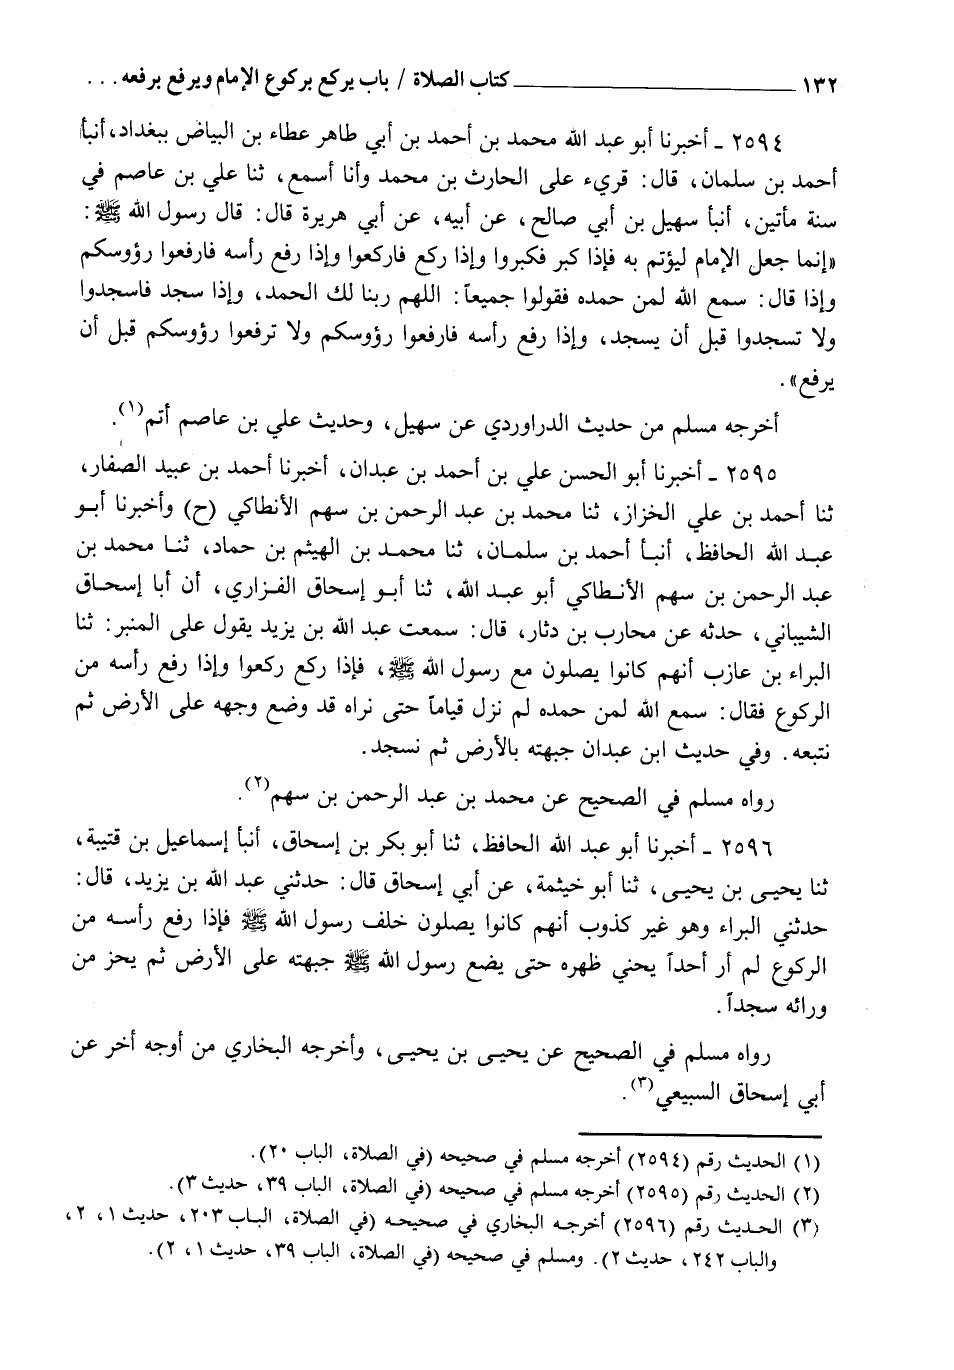 ١٣٢ كتاب الصلاة / باب يركع بركوع الإمام ويرفع برفعه . . .
٢٥٩٤ ـ أخبرنا أبو عبد الله محمد بن أحمد بن أبي طاهر عطاء بن البياض ببغداد، أنبأ
أحمد بن سلمان، قال: قريء على الحارث بن محمد وأنا أسمع، ثنا علي بن عاصم في
سنة مأتين، أنبأ سهيل بن أبي صالح، عن أبيه، عن أبي هريرة قال: قال رسول الله ﷺ:
«إنما جعل الإمام ليؤتم به فإذا كبر فكبروا وإذا ركع فاركعوا وإذا رفع رأسه فارفعوا رؤوسكم
وإذا قال: سمع الله لمن حمده فقولوا جميعاً: اللهم ربنا لك الحمد، وإذا سجد فاسجدوا
ولا تسجدوا قبل أن يسجد، وإذا رفع رأسه فارفعوا رؤوسكم ولا ترفعوا رؤوسكم قبل أن
يرفع».
أخرجه مسلم من حديث الدراوردي عن سهيل، وحديث علي بن عاصم أتم(١).
٢٥٩٥ ـ أخبرنا أبو الحسن علي بن أحمد بن عبدان، أخبرنا أحمد بن عبيد الصفار،
ثنا أحمد بن علي الخزاز، ثنا محمد بن عبد الرحمن بن سهم الأنطاكي (ح) وأخبرنا أبو
عبد الله الحافظ، أنبأ أحمد بن سلمان، ثنا محمد بن الهيثم بن حماد، ثنا محمد بن
عبد الرحمن بن سهم الأنطاكي أبو عبد الله، ثنا أبو إسحاق الفزاري، أن أبا إسحاق
الشيباني، حدثه عن محارب بن دثار، قال: سمعت عبد الله بن يزيد يقول على المنبر: ثنا
البراء بن عازب أنهم كانوا يصلون مع رسول الله ﷺ، فإذا ركع ركعوا وإذا رفع رأسه من
الركوع فقال: سمع الله لمن حمده لم نزل قياماً حتى نراه قد وضع وجهه على الأرض ثم
نتبعه. وفي حديث ابن عبدان جبهته بالأرض ثم نسجد.
رواه مسلم في الصحيح عن محمد بن عبد الرحمن بن سهم(٢).
٢٥٩٦ ـ أخبرنا أبو عبد الله الحافظ، ثنا أبو بكر بن إسحاق، أنبأ إسماعيل بن قتيبة،
ثنا يحيى بن يحيى، ثنا أبو خيثمة، عن أبي إسحاق قال: حدثني عبد الله بن يزيد، قال:
حدثني البراء وهو غير كذوب أنهم كانوا يصلون خلف رسول الله ﷺ فإذا رفع رأسه من
الركوع لم أر أحداً يحني ظهره حتى يضع رسول الله ﷺ جبهته على الأرض ثم يحز من
ورائه سجداً.
رواه مسلم في الصحيح عن يحيى بن يحيى، وأخرجه البخاري من أوجه أخر عن
أبي إسحاق السبيعي(٣).
(١) الحديث رقم (٢٥٩٤) أخرجه مسلم في صحيحه (في الصلاة، الباب ٢٠).
(٢) الحديث رقم (٢٥٩٥) أخرجه مسلم في صحيحه (في الصلاة، الباب ٣٩، حديث ٣).
(٣) الحديث رقم (٢٥٩٦) أخرجه البخاري في صحيحه (في الصلاة، الباب ٢٠٣، حديث ١، ٢،
والباب ٢٤٢، حديث ٢). ومسلم في صحيحه (في الصلاة، الباب ٣٩، حديث ١، ٢).